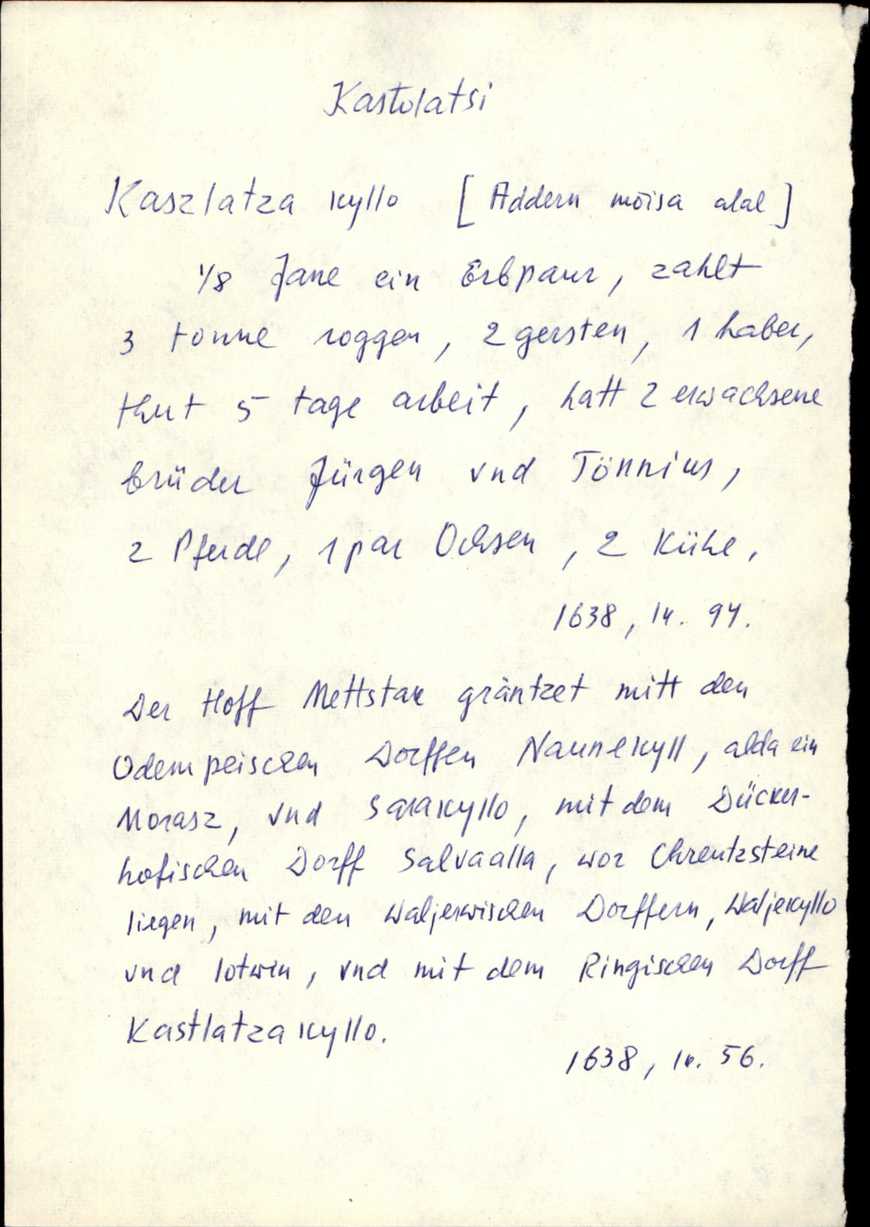 Kastolatsi
Kaszlatza kyllo [Addern mõisa alal]
1/8 Jane ein Erbpaur, zahlt
3 tonne roggen, 2 gersten, 1 haber,
thut 5 tage arbeit, hatt 2 erwachsene
brüder Jürgen vnd Tönnius,
2 Pferde, 1 par Ochsen, 2 Kühe,
1638, lk. 94.
Der Hoff Mettstak gräntzet mitt den
Odempeischen Dorffen Naunekyll, alda ein
Morasz, vnd Sarakyllo, mit dem Dücker-
hofischen Dorff Salvaalla, wor Chreutzsteine
liegen, mit den Waljekwischen Dorffern, Waljekyllo
vnd lotwen, vnd mit dem Ringischen Dorff
Kastlatza kyllo.
1638, lk. 56.